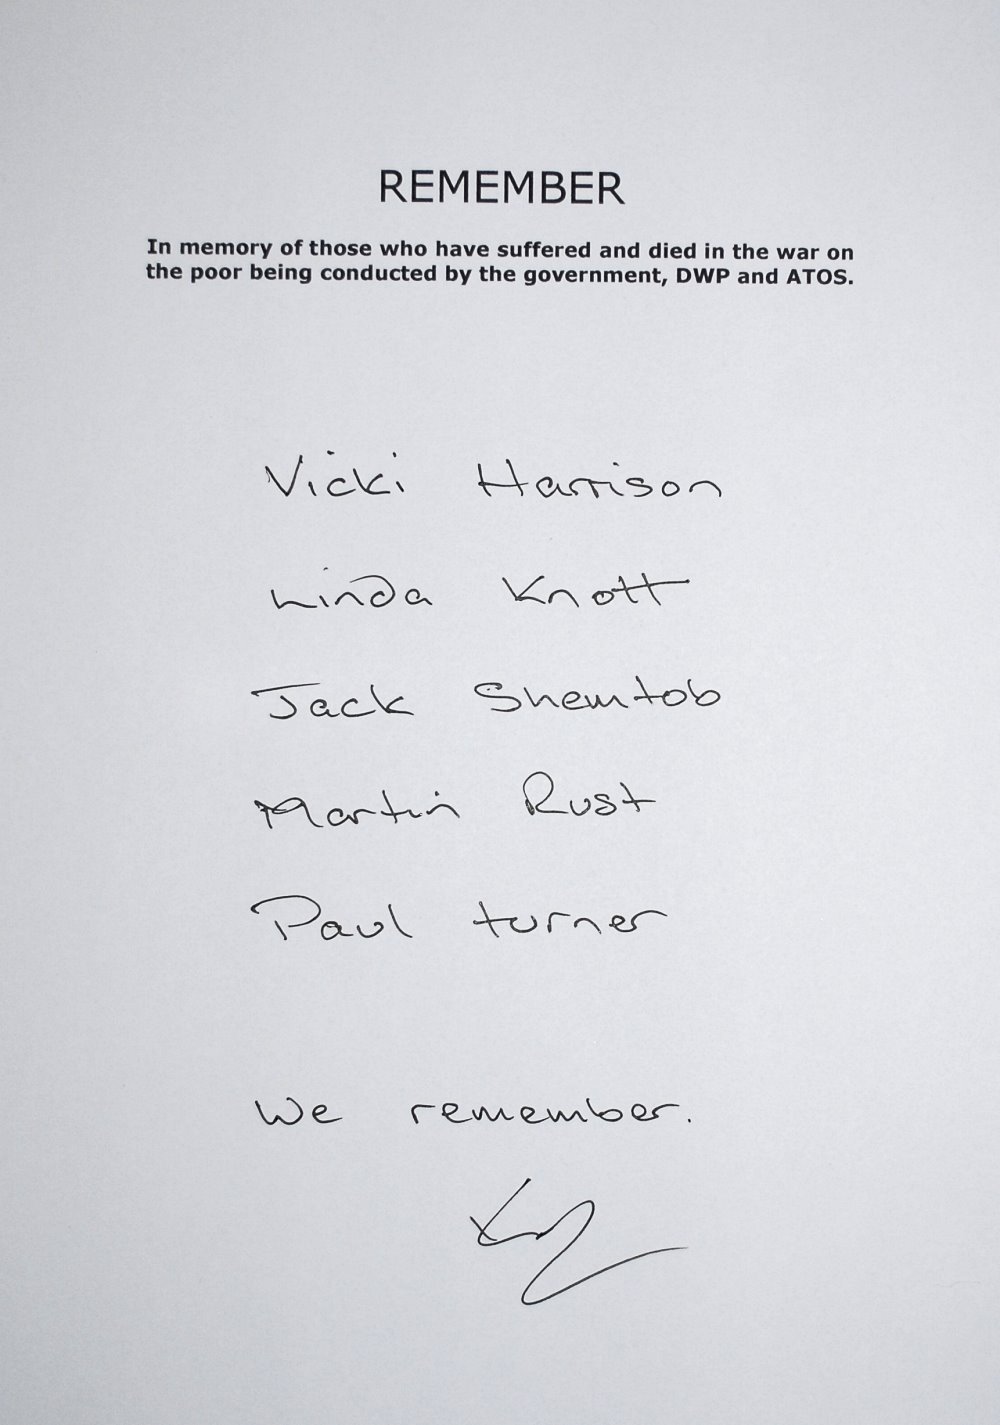 REMEMBER
In memory of those who have suffered and died in the war on
the poor being conducted by the government, DWP and ATOS.
Vicki Harrison
Linda Knott
Jack Shemtob
Martin Rust
Paul turner
We remember.